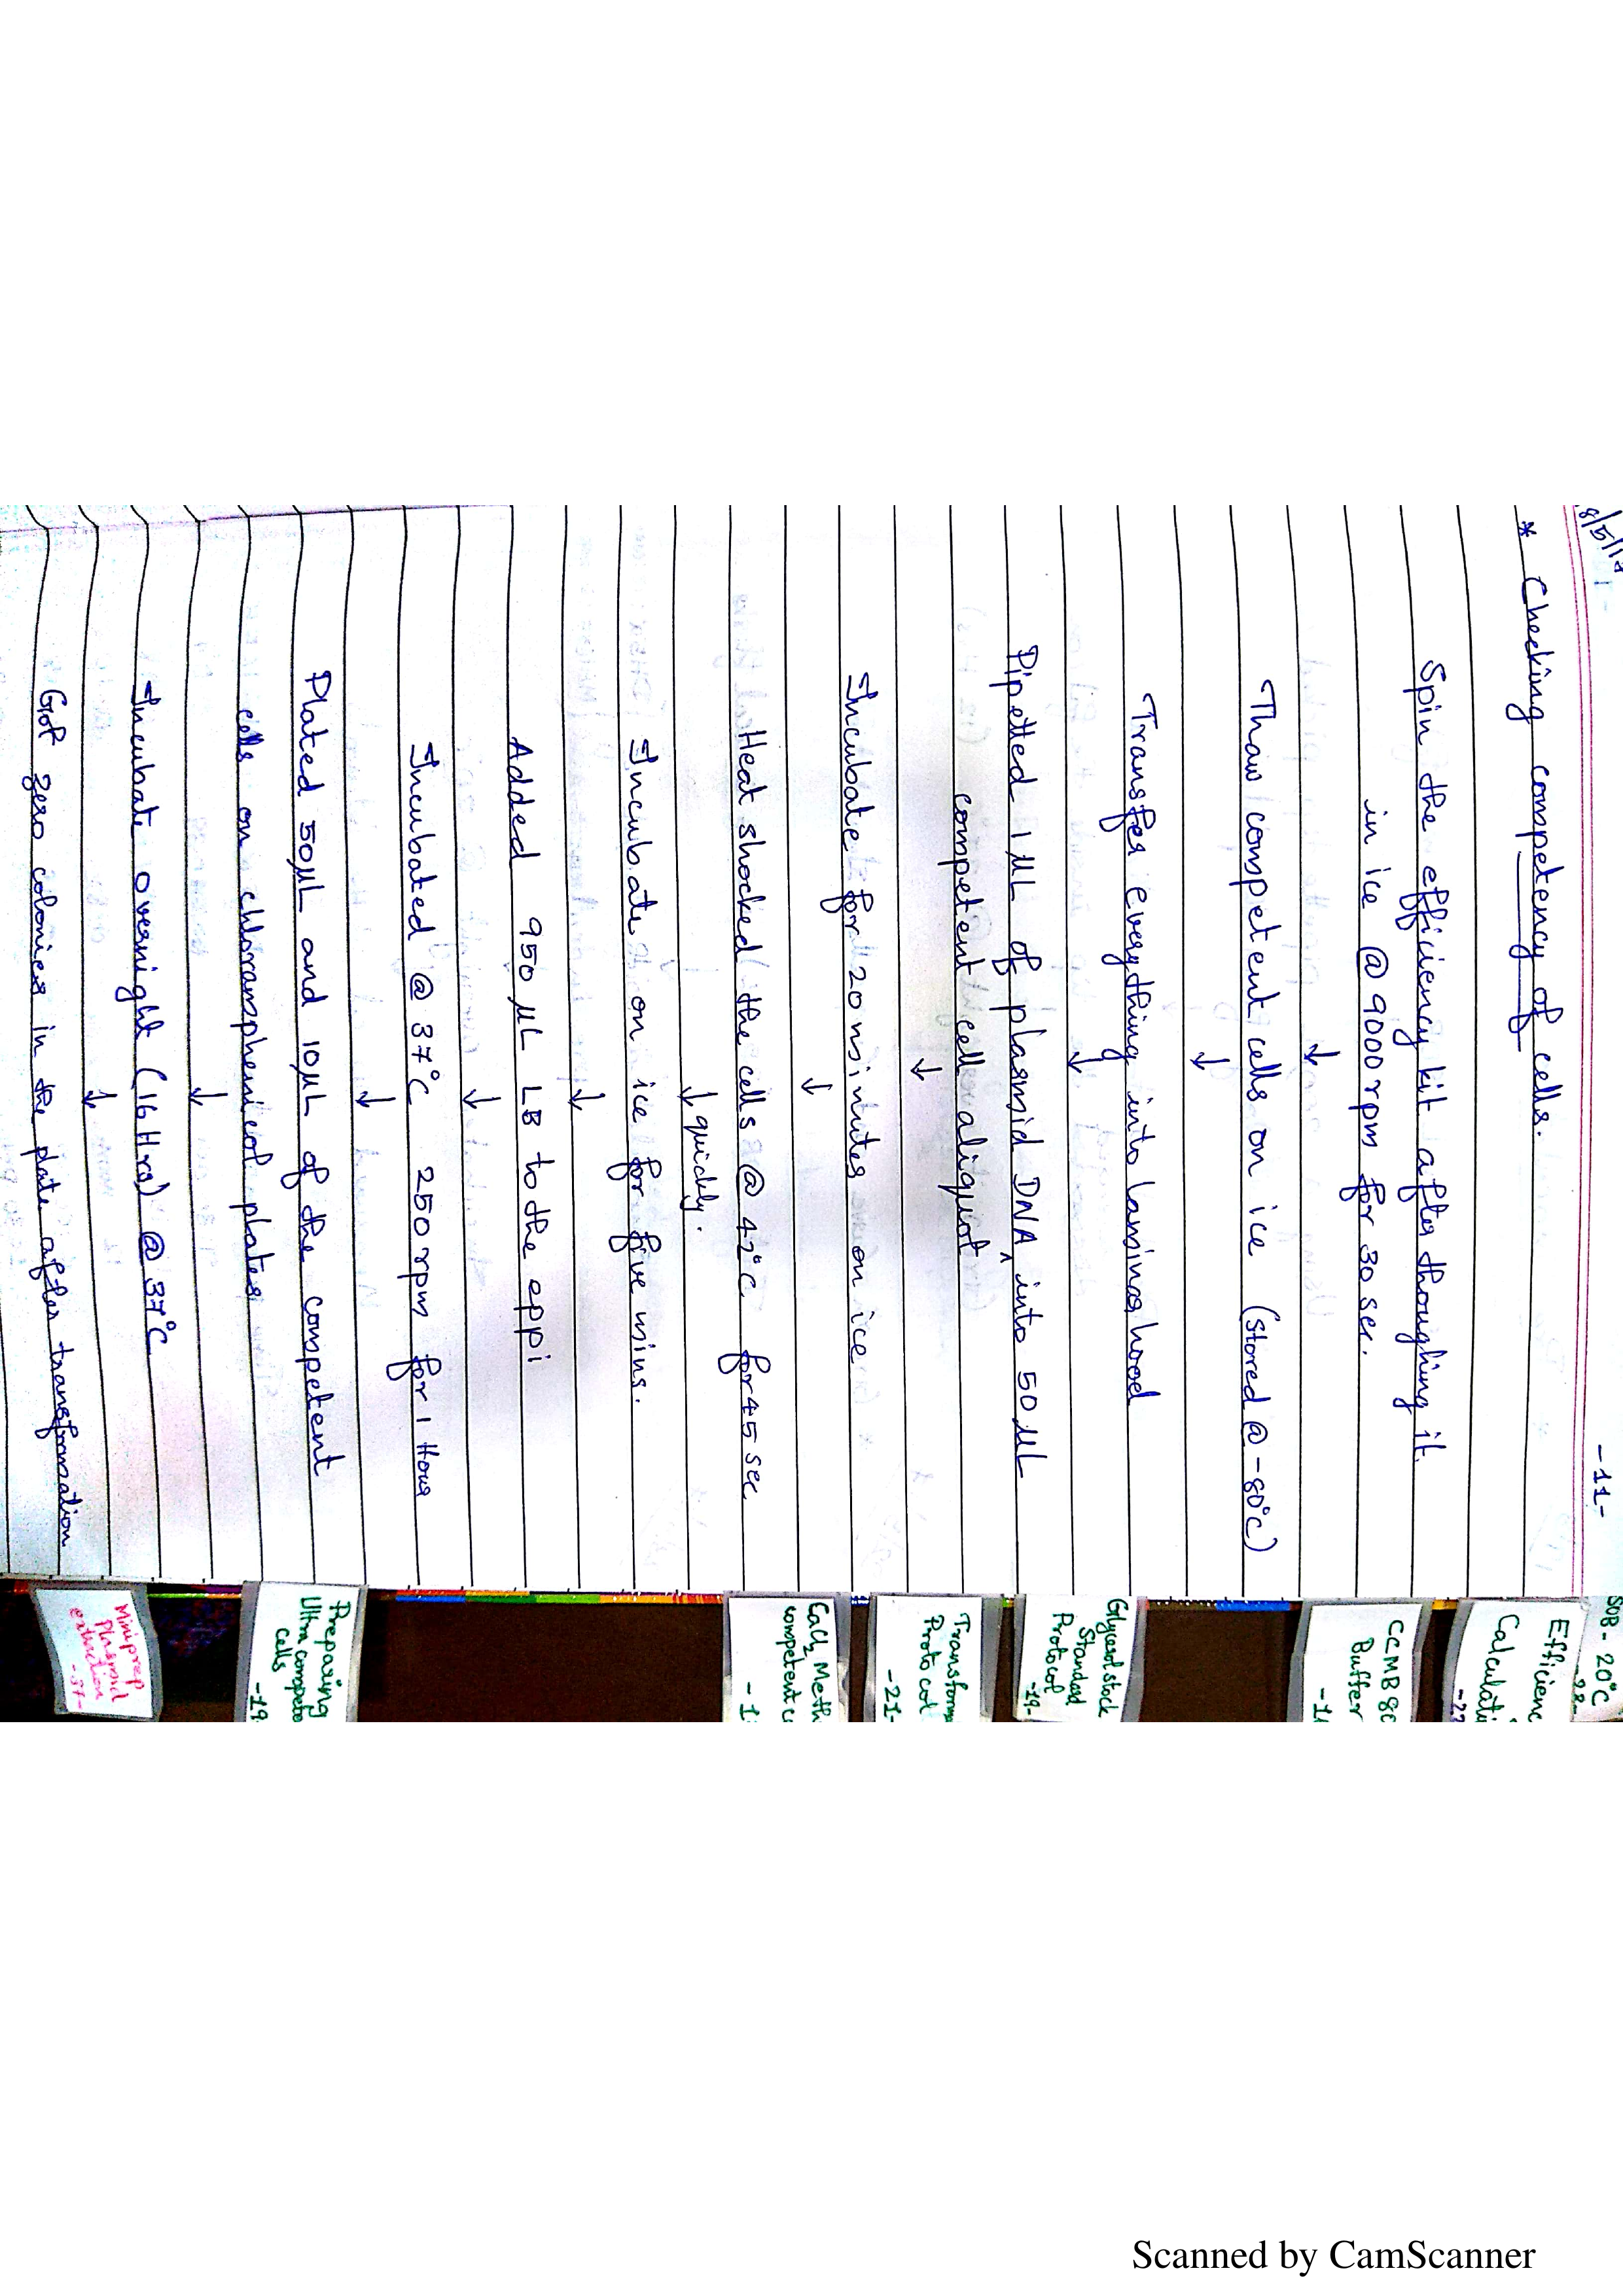 8/5/19
-11-
* Checking competency of cells.
Spin the efficiency kit after thoughing it.
in ice @ 9000rpm for 30 sec.
↓
Thaw competent cells on ice (stored @ -80°C)
↓
Transfer everything into laminar hood
↓
Pipetted 1 µL of plasmid DNA ^ into 50 µL
competent cell aliquot
↓
Incubate for 20 minutes on ice
↓
Heat shocked the cells @ 42°C for 45 sec
↓ quickly.
Incubate on ice for five mins.
↓
Added 950 µL LB to the eppi
↓
Incubated @ 37°C 250rpm for 1 Hour
↓
Plated 50µL and 10µL of the competent
cells on chloramphenicol plates
↓
Incubate overnight (16 Hrs) @ 37°C
↓
Got zero colonies in the plate after transformation
SOB - 20°C
Efficienc
Calculati
CCMB 80
Buffer
Glycerol stock
Standard
Protocol
-19-
Transforma
Protocol
-21-
CaCl2 Meth
competent c
-1
Preparing
Ultra compete
cells
-19
Miniprep
Plasmid
extraction
-37-
Scanned by CamScanner